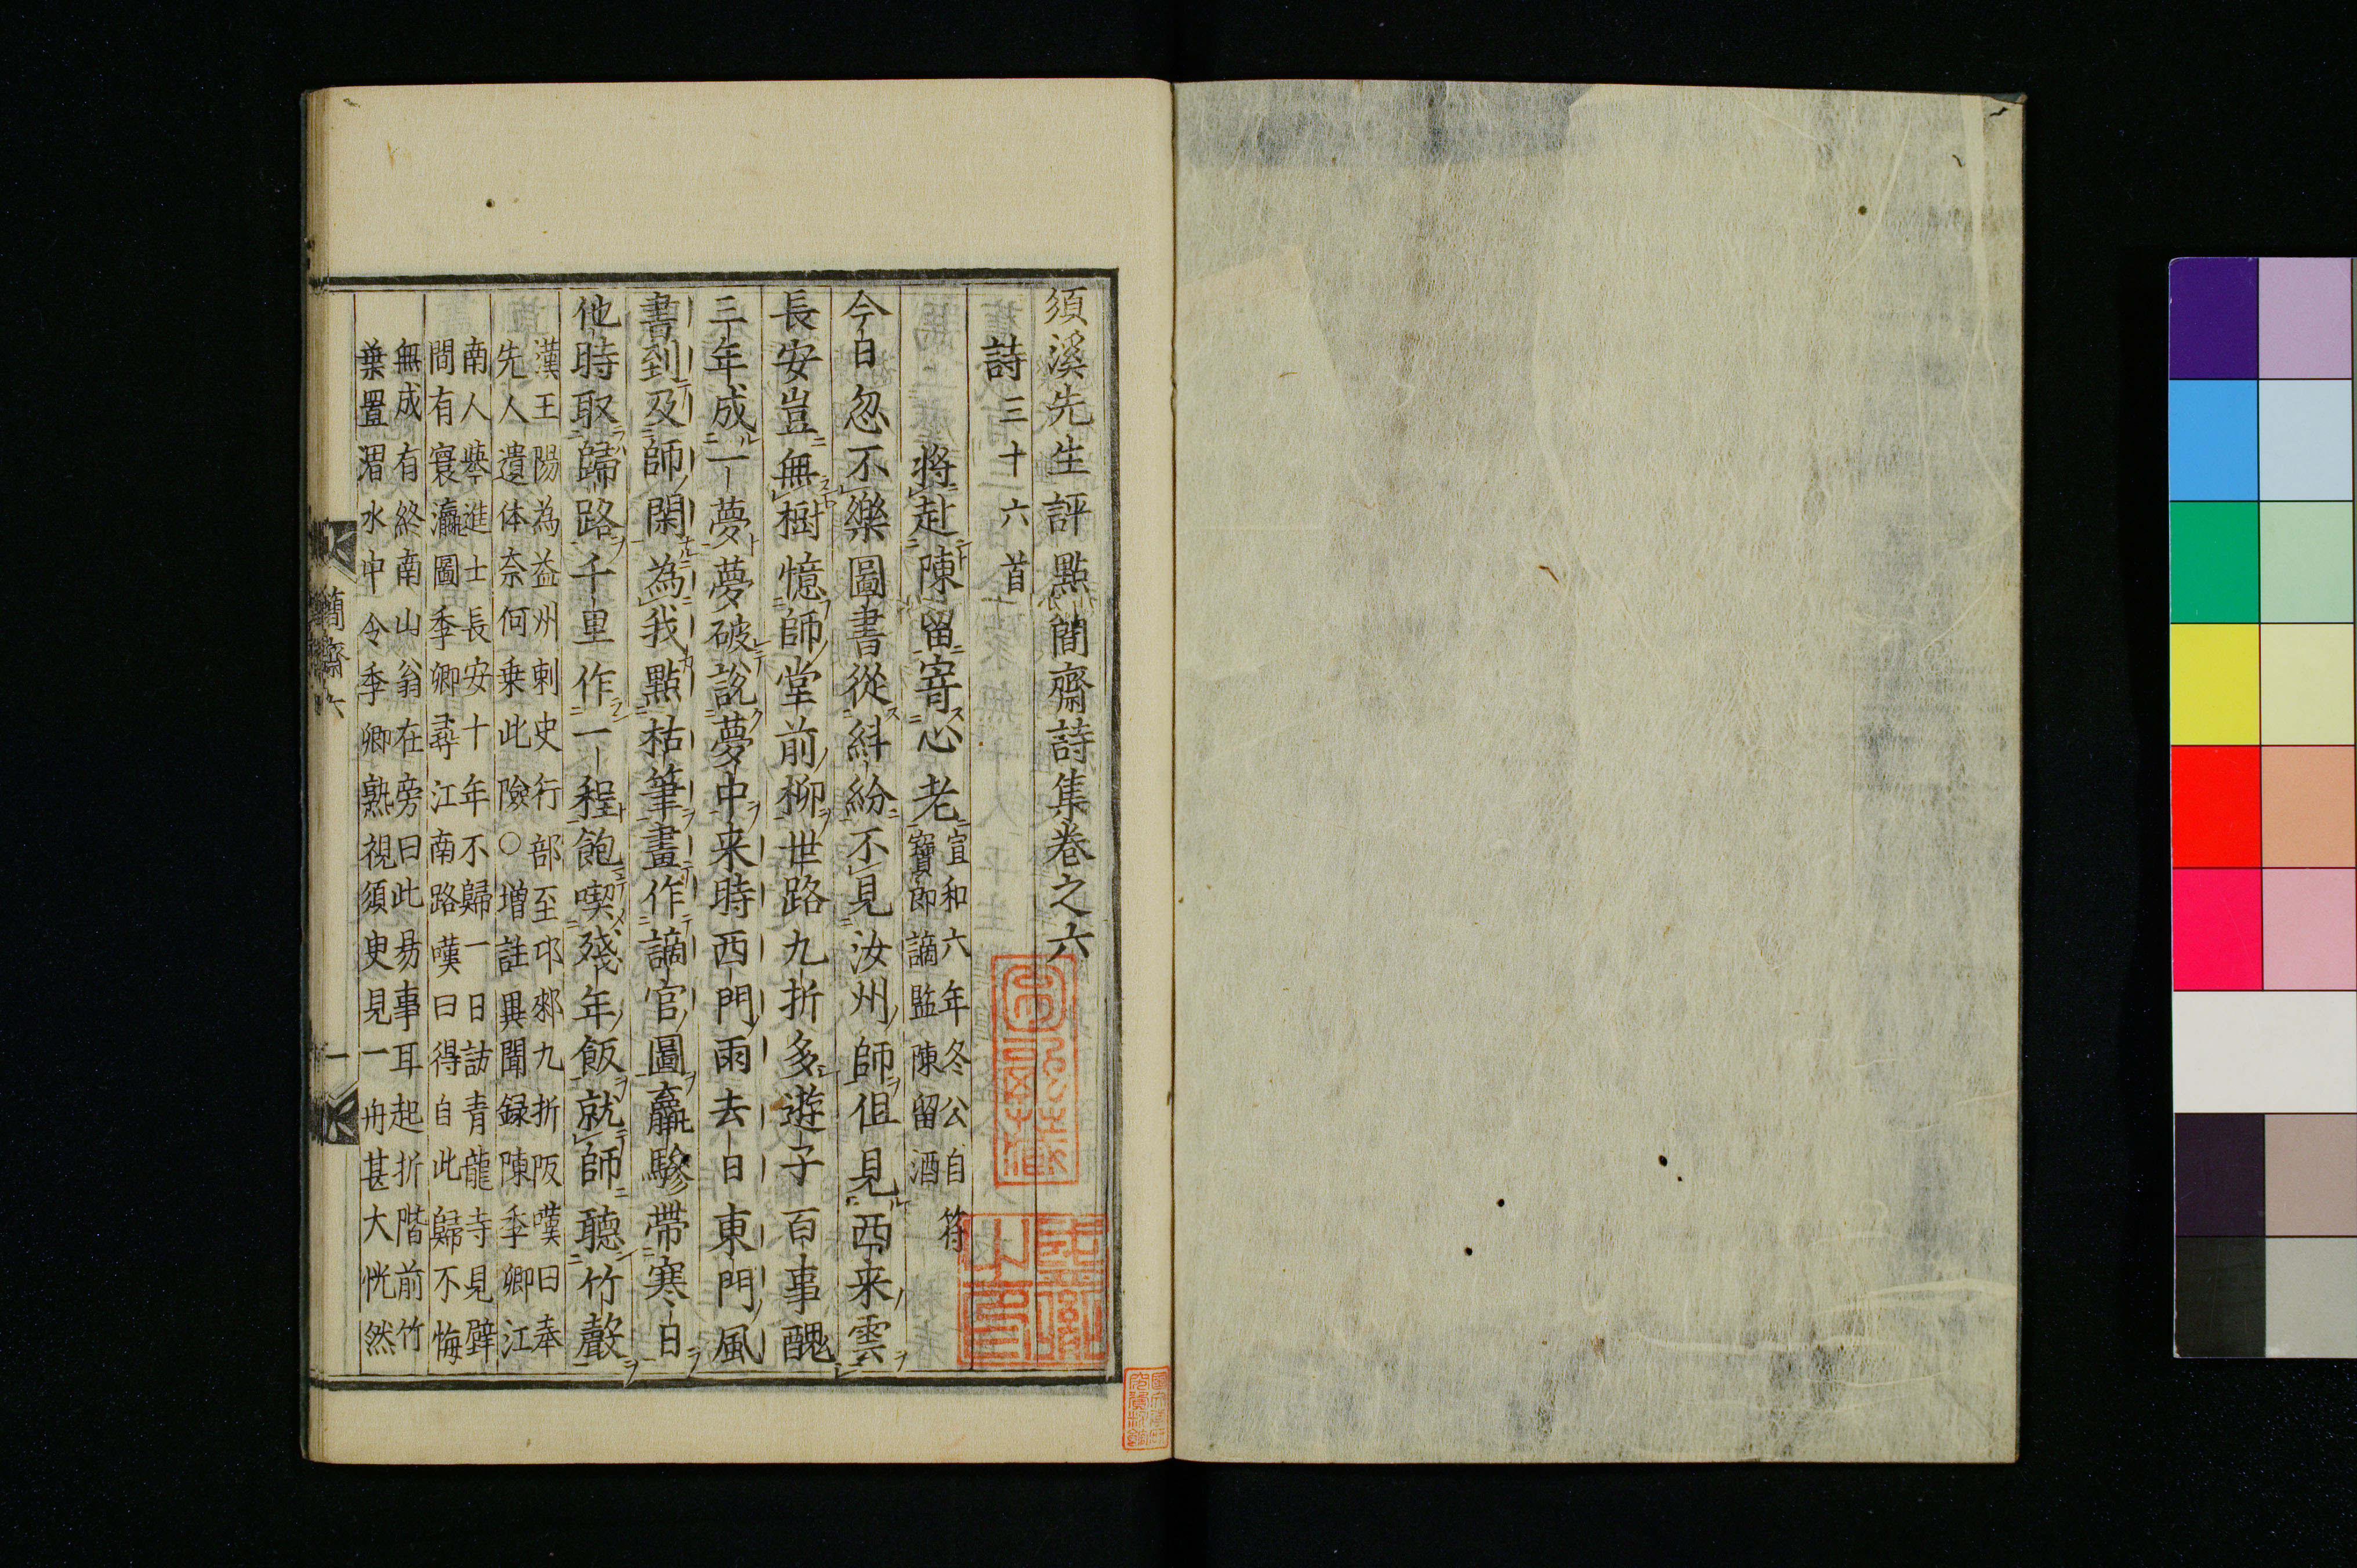 須溪先生評點簡齋詩集卷之六
詩三十六首
將赴陳留寄心老
宣和六年冬公自符
寶郎謫監陳留酒
今日忽不樂圖書從糾紛不見汝州師但見西来雲
長安豈無樹憶師堂前柳世路九折多遊子百事醜
三年成一夢夢破說夢中来時西門雨去日東門風
書到及師閑為我點枯筆畫作謫官圖羸驂帶寒日
他時取歸路千里作一程飽喫殘年飯就師聽竹聲
漢王陽為益州刺史行部至邛郲九折阪嘆曰奉
先人遺体奈何乗此險○増註異聞録陳季卿江
南人舉進士長安十年不歸一日訪青龍寺見壁
間有寰瀛圖季卿尋江南路嘆曰得自此歸不悔
無成有終南山翁在旁曰此易事耳起折階前竹
葉置渭水中令季卿熟視須臾見一舟甚大恍然
簡齋六
一